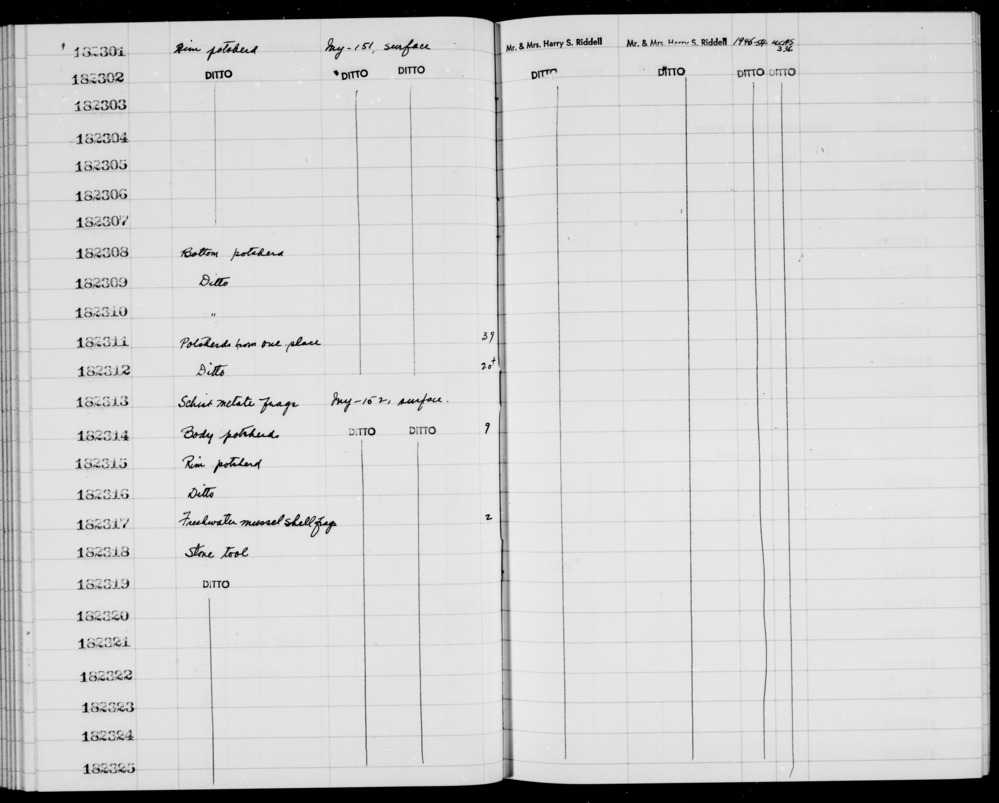 182301 Rim potsherd Iny-151, surface Mr. & Mrs. Harry S. Riddell Mr. & Mrs. Harry S. Riddell 1946-54 UCAS 336
182302 DITTO DITTO DITTO DITTO DITTO DITTO DITTO
182303
182304
182305
182306
182307
182308 Bottom potsherd
182309 Ditto
182310 "
182311 Potsherds from one place 39
182312 Ditto 20+
182313 Schist metate frags Iny-152, surface.
182314 Body potsherds DITTO DITTO 9
182315 Rim potsherd
182316 Ditto
182317 Freshwater mussel shell frags 2
182318 Stone tool
182319 DITTO
182320
182321
182322
182323
182324
182325